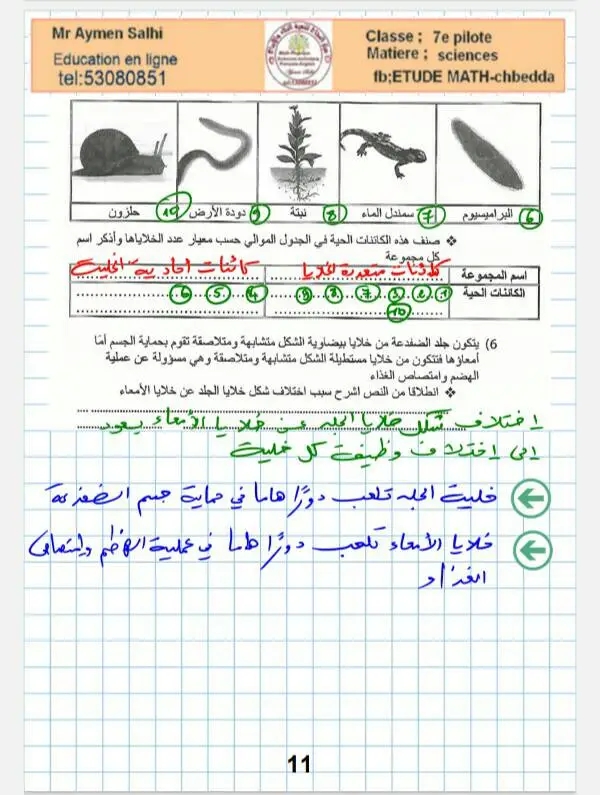 Mr Aymen Salhi
Education en ligne
tel:53080851
Classe ; 7e pilote
Matiere ; sciences
fb;ETUDE MATH-chbedda
6 البراميسيوم 7 سمندل الماء 8 نبتة 9 دودة الأرض 10 حلزون
❖ صنف هذه الكائنات الحية في الجدول الموالي حسب معيار عدد الخلاياها وأذكر اسم
كل مجموعة
اسم المجموعة كائنات متعددة الخلايا كائنات احادية الخلية
الكائنات الحية 1 2 3 7 8 9 4 5 6
10
6) يتكون جلد الضفدعة من خلايا بيضاوية الشكل متشابهة ومتلاصقة تقوم بحماية الجسم أما
أمعاؤها فتتكون من خلايا مستطيلة الشكل متشابهة ومتلاصقة وهي مسؤولة عن عملية
الهضم وامتصاص الغذاء
❖ انطلاقا من النص اشرح سبب اختلاف شكل خلايا الجلد عن خلايا الأمعاء
اختلاف شكل خلايا الجلد عن خلايا الأمعاء يعود
الى اختلاف وظيفة كل خلية
خلية الجلد تلعب دورًا هاما في حماية جسم الضفدعة
خلايا الأمعاء تلعب دورًا هاما في عملية الهظم وامتصاص
الغذاء
11